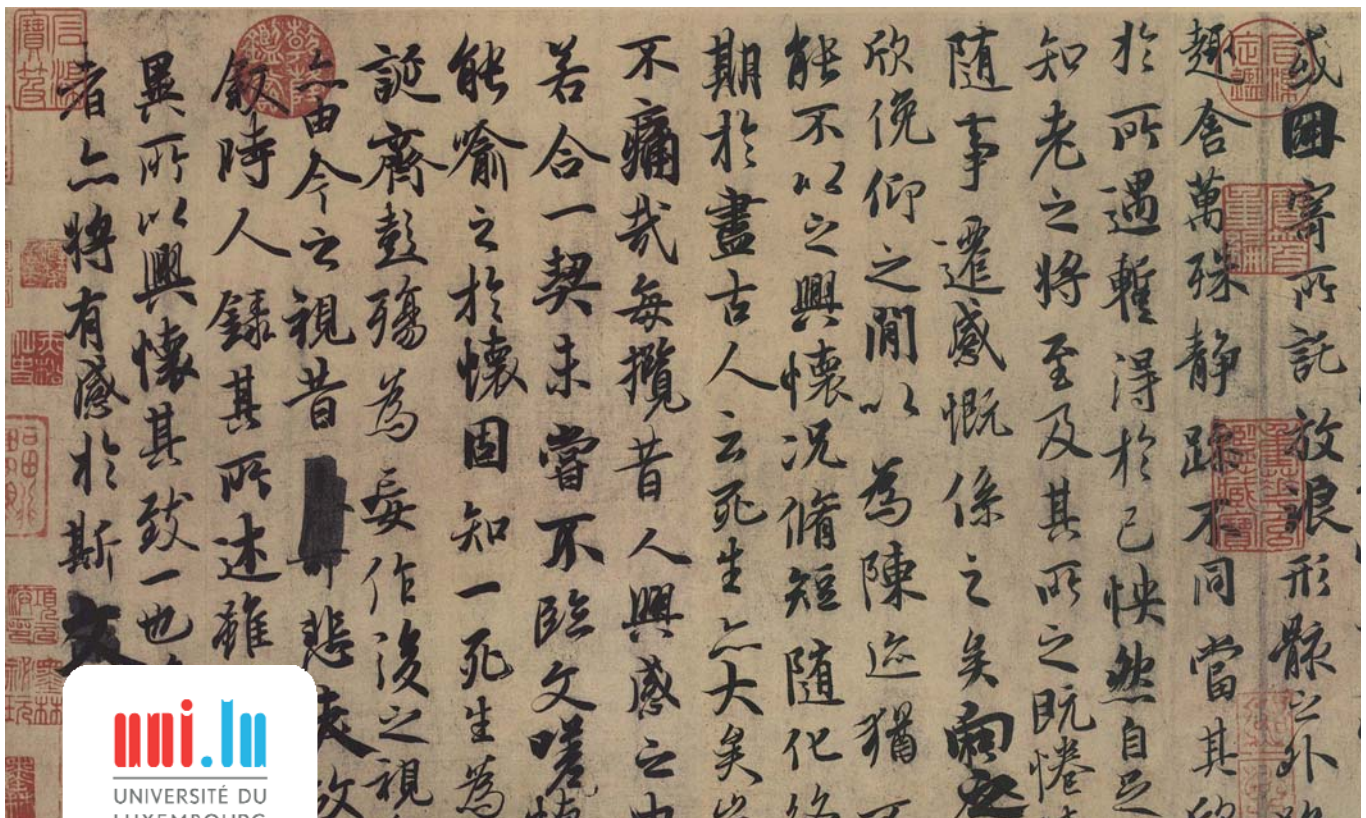 或因寄所託放浪形骸之外
趣舍萬殊靜躁不同當其欣
於所遇暫得於己怏然自足
知老之將至及其所之既惓
隨事遷感慨係之矣向之
欣俛仰之閒以為陳迹猶不
能不以之興懷況脩短隨化終
期於盡古人云死生亦大矣
不痛哉每攬昔人興感之由
若合一契未嘗不臨文嗟悼
能喻之於懷固知一死生為
誕齊彭殤為妄作後之視
亦由今之視昔悲夫故
敘時人錄其所述雖
異所以興懷其致一也
者亦將有感於斯文
uni.lu
UNIVERSITÉ DU
LUXEMBOURG